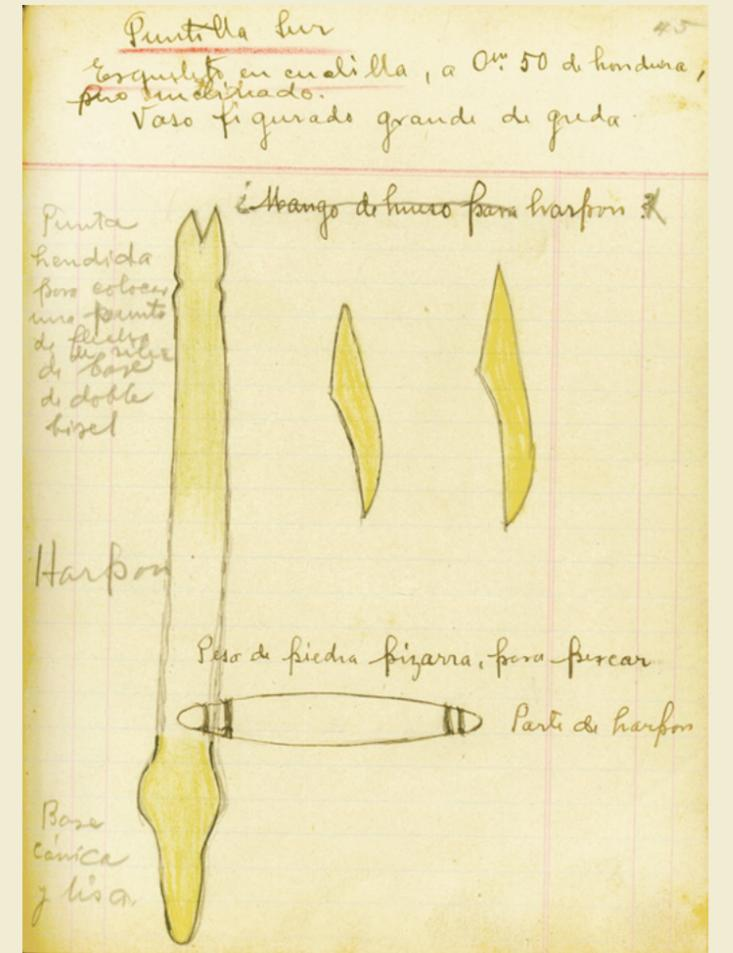 45
Puntilla Sur
Esqueleto en cuclilla, a 0m. 50 de hondura,
pero inclinado.
Vaso figurado grande de greda
¿Mango de hueso para harpon?
Punta
hendida
para colocar
una punta
de flecha
de silex
de base
de doble
bisel
Harpon
Peso de piedra pizarra, para pescar
Parte de harpon
Base
cónica
y lisa